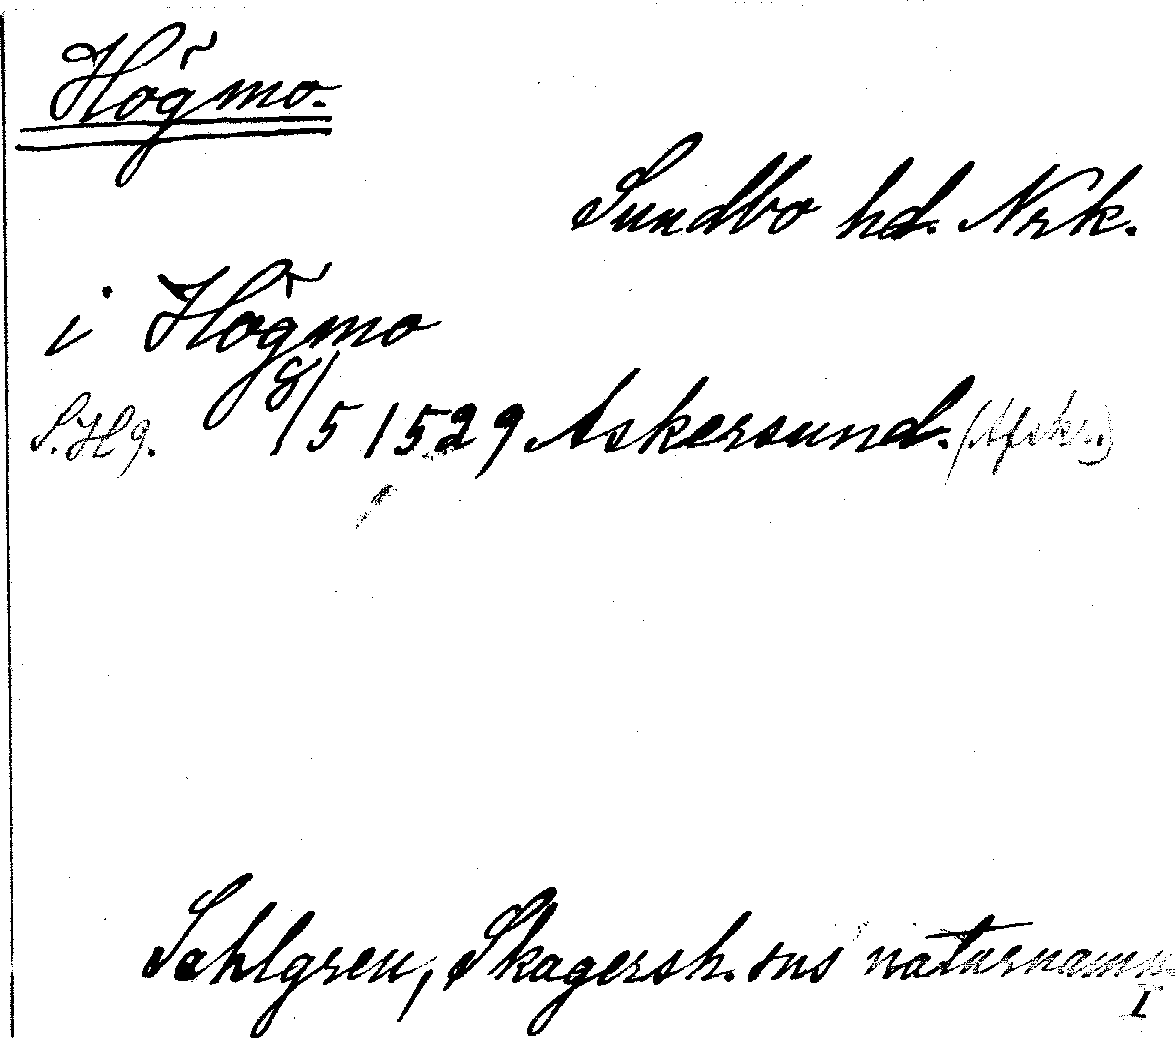 Högmo.
Sundbo hd. Nrk.
i Högmo
S.Hg. 8/5 1529 Askersund. (Afskr.)
Sahlgren, Skagersh. sns naturnamn
I